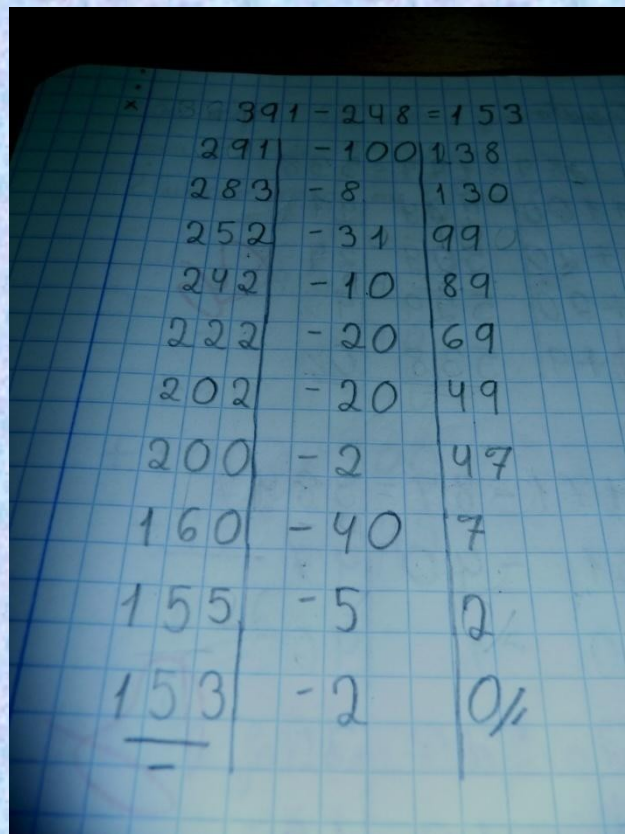 391 - 248 = 153
291 - 100 138
283 - 8 130
252 - 31 99
242 - 10 89
222 - 20 69
202 - 20 49
200 - 2 47
160 - 40 7
155 - 5 2
153 - 2 0//